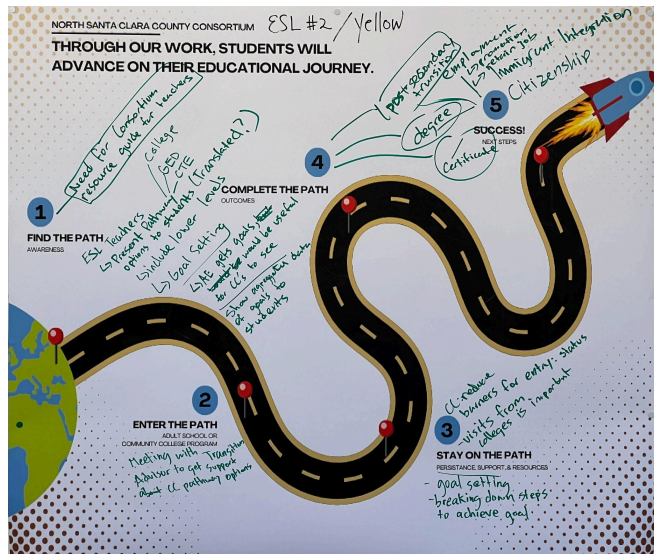 NORTH SANTA CLARA COUNTY CONSORTIUM
ESL #2 / Yellow
THROUGH OUR WORK, STUDENTS WILL
ADVANCE ON THEIR EDUCATIONAL JOURNEY.
Need for Consortium
resource guide for teachers
1
FIND THE PATH
AWARENESS
College
GED
CTE
ESL Teachers
↳ Present Pathway
options to students (Translated?)
↳ include lower levels
↳ Goal Setting
↳ AE gets goals
would be useful
for CC's to see
Show aggregated data
of goals to
students
2
ENTER THE PATH
ADULT SCHOOL OR
COMMUNITY COLLEGE PROGRAM
Meeting with Transition
Advisor to get support
about CC pathway options
3
STAY ON THE PATH
PERSISTANCE, SUPPORT, & RESOURCES
CC: reduce
barriers for entry: status
- visits from
colleges is important
- goal setting
- breaking down steps
to achieve goal
4
COMPLETE THE PATH
OUTCOMES
postsecondary
transition
degree
Certificate
employment
↳ promotion
↳ retain job
5
SUCCESS!
NEXT STEPS
Immigrant Integration
Citizenship